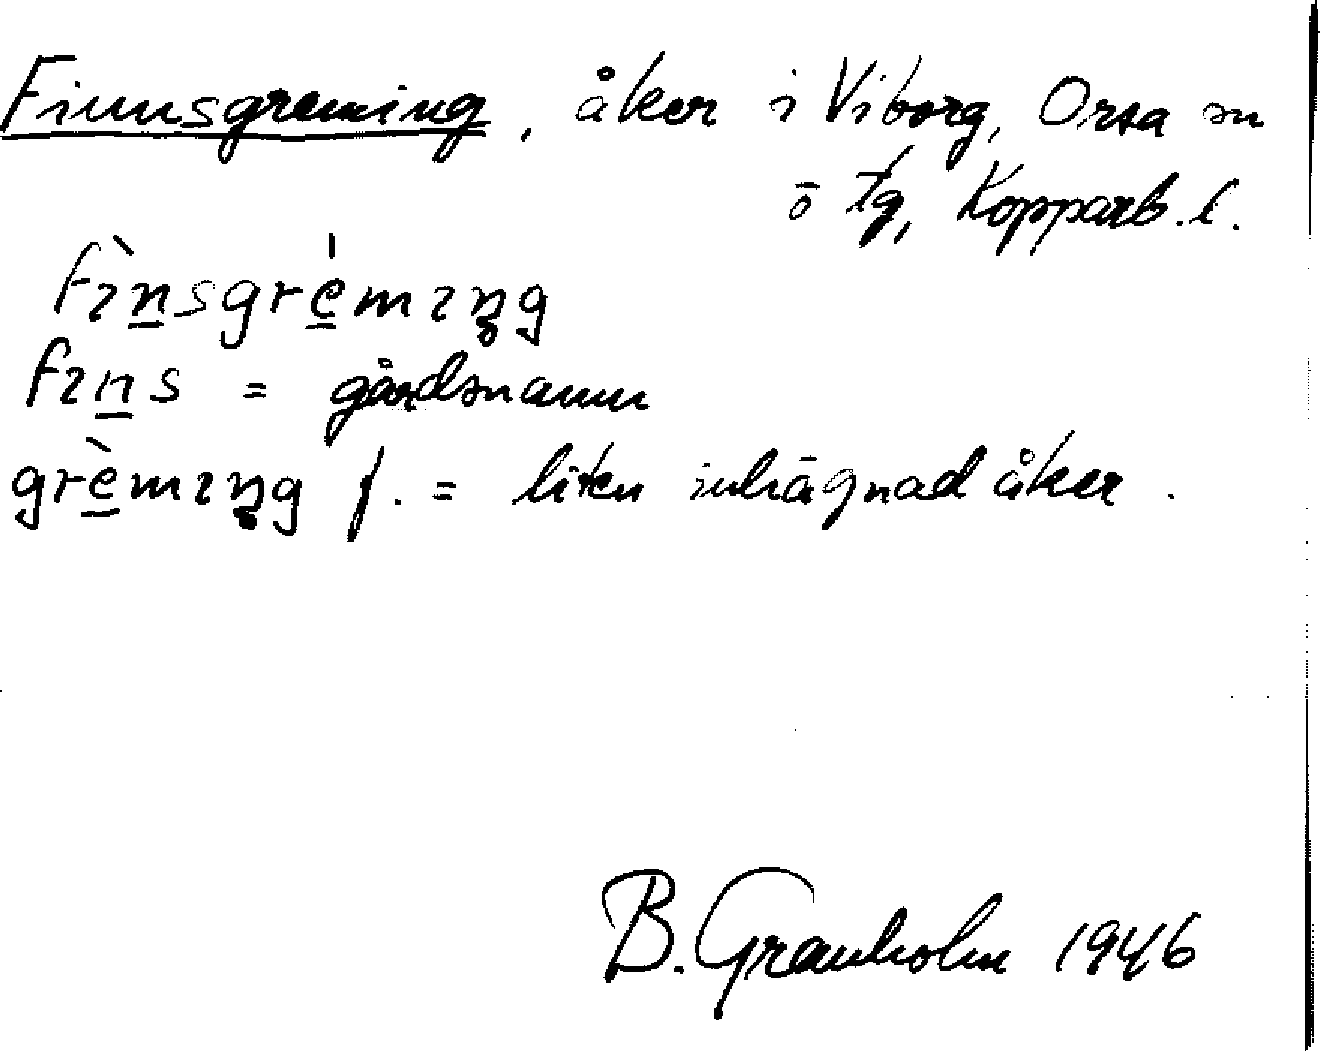 Finnsgreming, åker i Viborg, Orsa sn
o tg, Kopparb. l.
fìn̲sgré̲mıŋg
fın̲s = gårdsnamn
grè̲mıŋg f. = liten inhägnad åker.
B. Granholm 1946